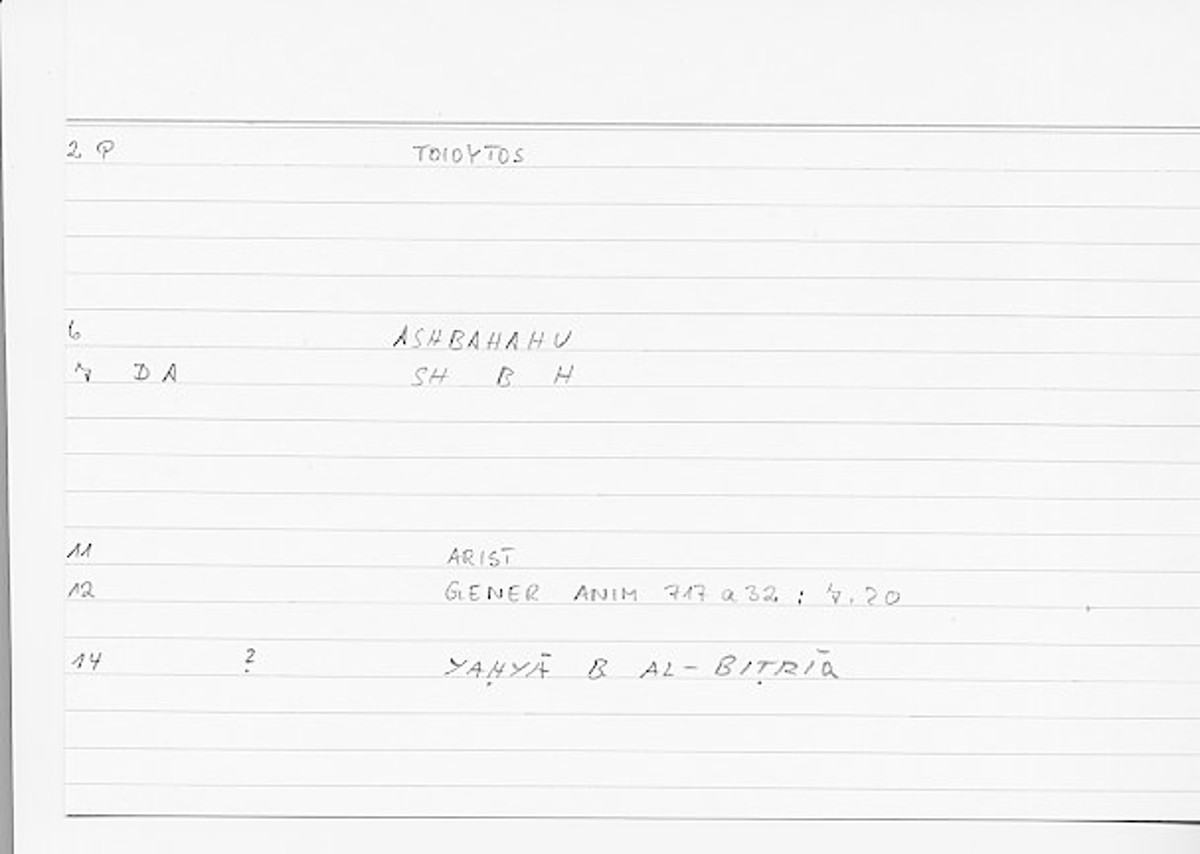 2 P TOIOYTOS
6 ASHBAHAHU
7 D A SH B H
11 ARIST
12 GENER ANIM 717 a 32 : 7.20
14 ? YAḤYĀ B AL-BIṬRĪQ